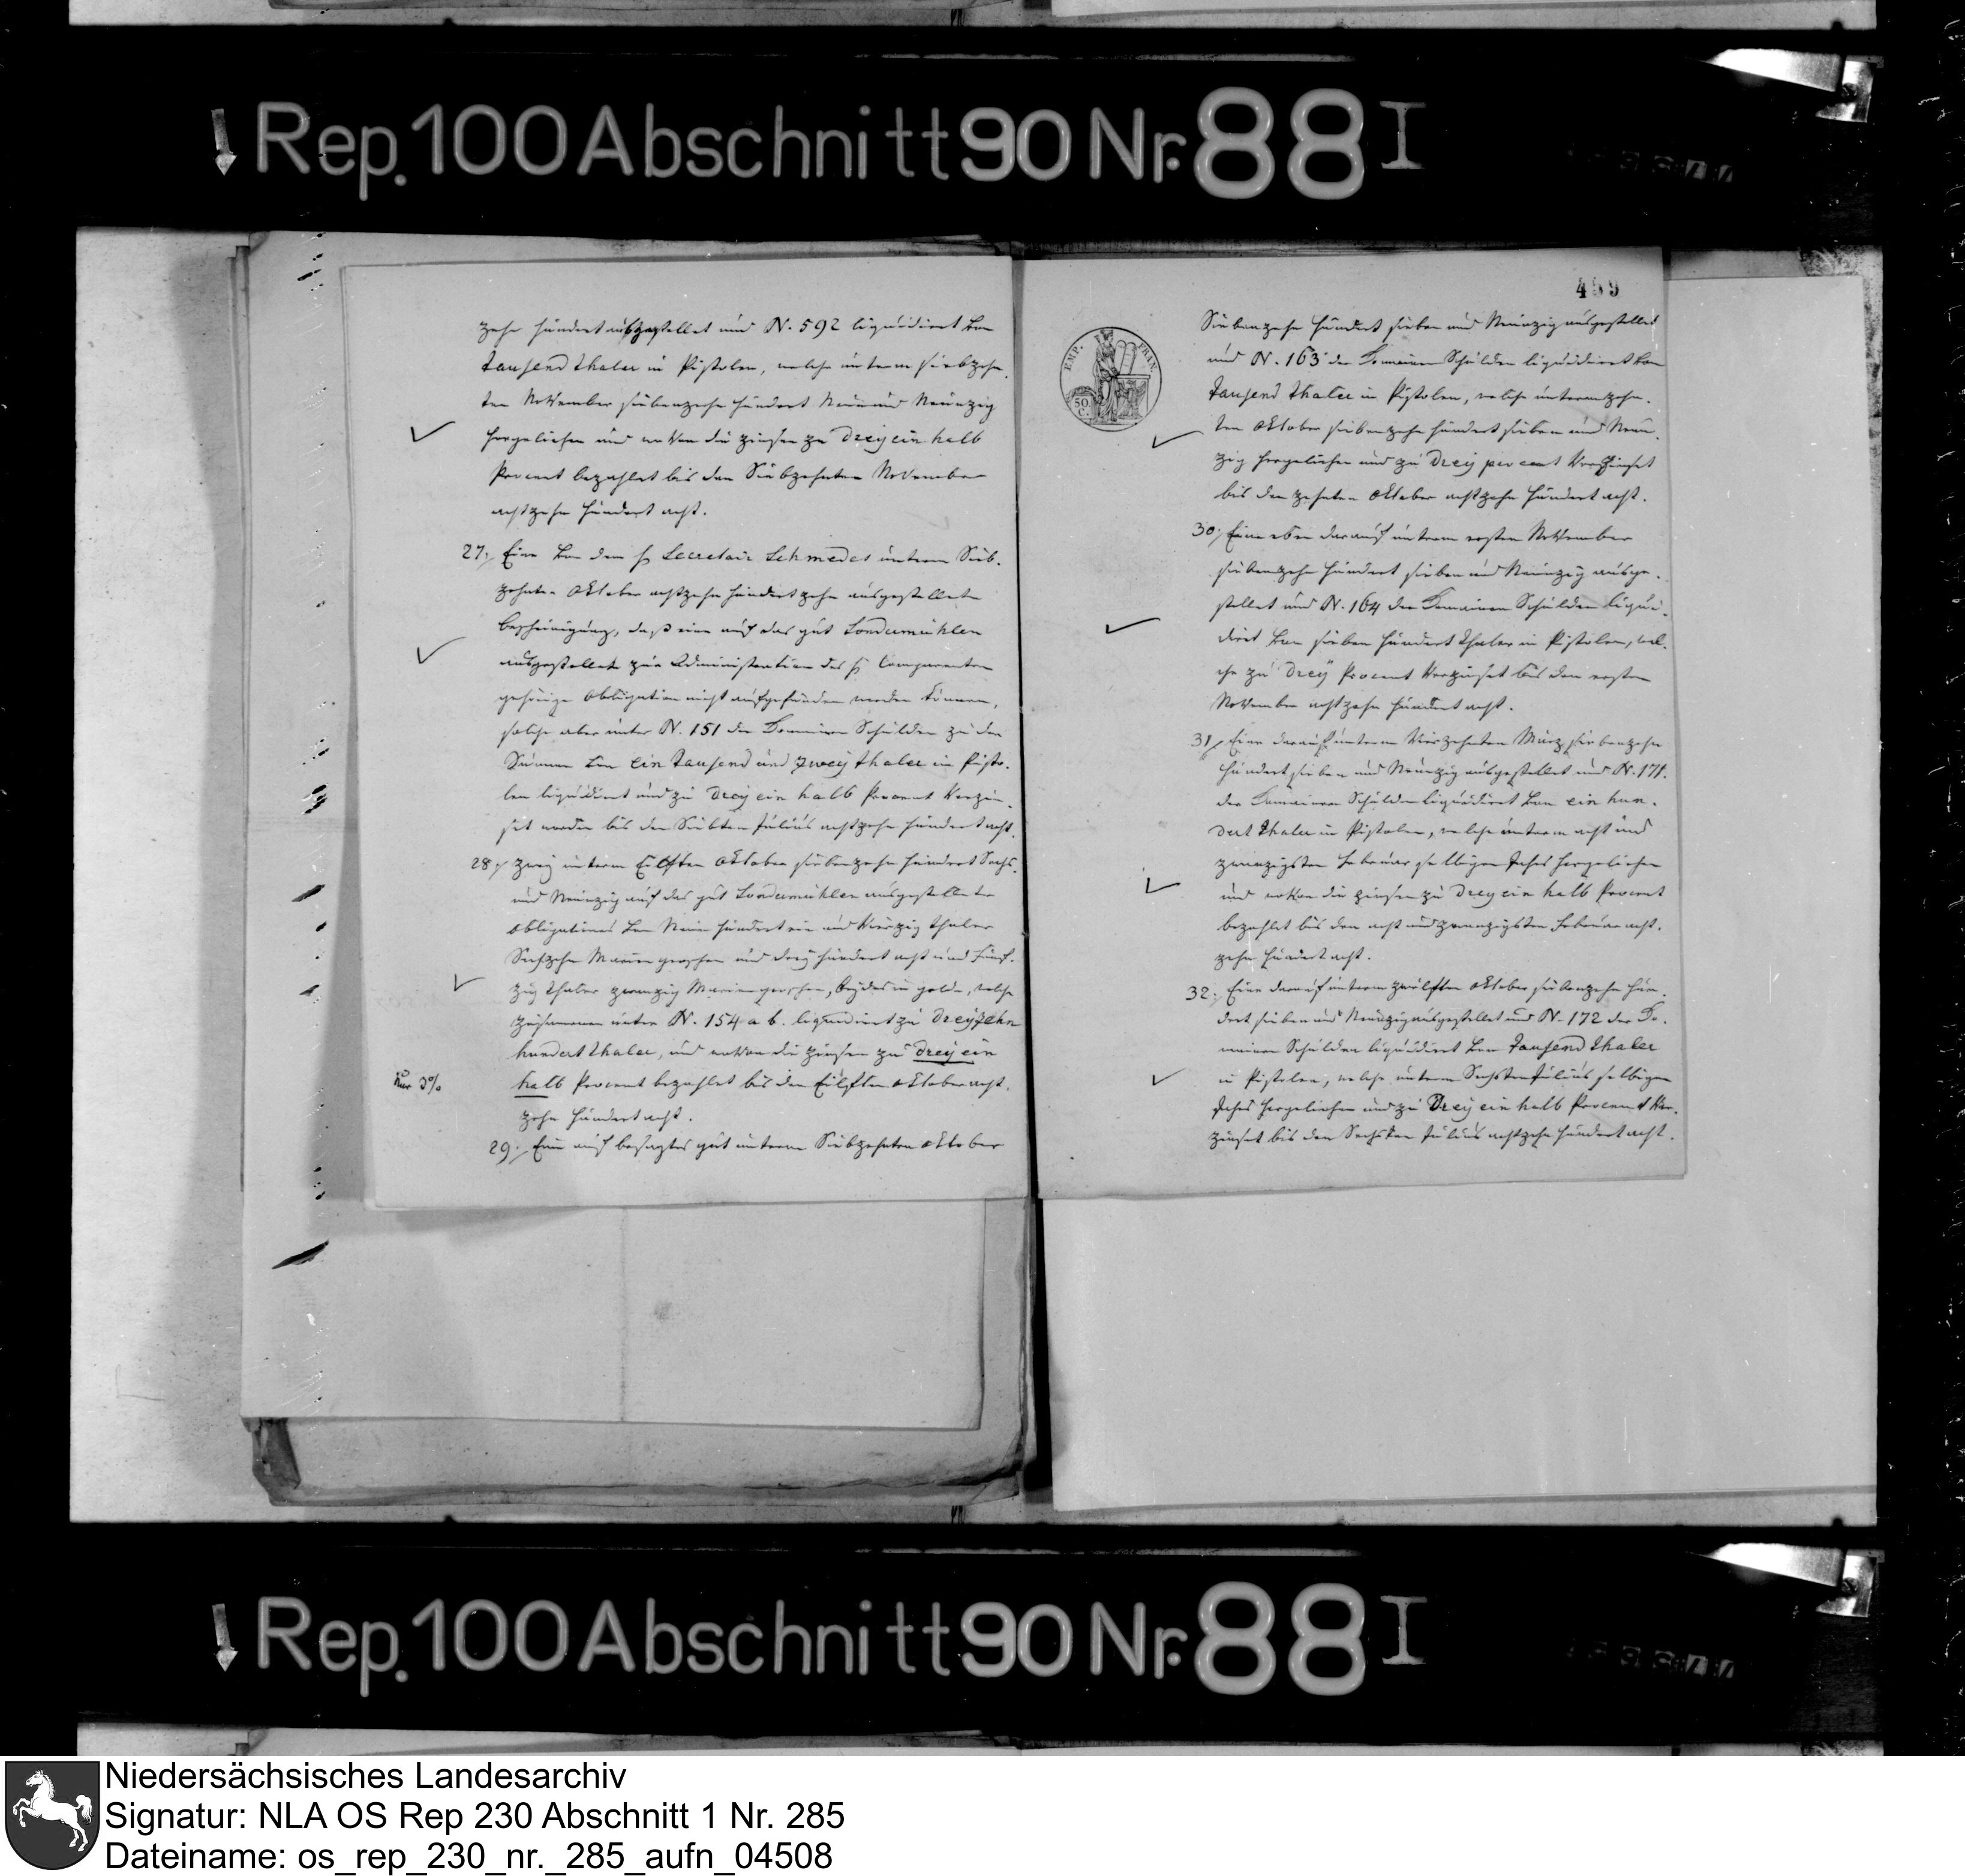 Rep. 100 Abschnitt 90 Nr. 88 I
zehn hundert ausgestellet und N. 592 liquidiret von
Tausend thaler in Pistolen, welche unterm siebzehn
ten November siebenzehn hundert Neun und Neunzig
hergeliehen und wovon die Zinsen zu drey ein halb
Procent bezahlet bis den Siebzehnten November
achtzehn hundert acht.
27; Eine von dem H Secretair Schmedes unterm Sieb-
zehnten Oktober achtzehn hundert zehn ausgestellete
Bescheinigung, daß eine auf das gut Sondermühlen
ausgestellet zur Administration des H Comparenten
gehörige Obligation nicht aufgefunden werden können,
solche aber unter N. 151 der Domainen Schulden zu der
Summe von Ein Tausend und zwey thaler in Pisto-
len liquidiret und zu drey ein halb Procent Verzin-
set worden bis den Siebten Julius achtzehn hundert acht.
28; zwey unterm Eilften Oktober siebenzehn hundert Sechs
und Neunzig auf das gut Sondermühlen ausgestellete
Obligationes von Neun hundert ein und Vierzig thaler
Sechzehn Mariengroschen und drey hundert acht und Funf-
zig thaler zwanzig Mariengroschen, beydes in golde, welche
zusammen unter N. 154 a b. liquidiret zu Dreyzehn
hundert thaler, und wovon die Zinsen zu drey ein
Nur 3%
halb Procent bezahlet bis den Eilften Oktober acht-
zehn hundert acht.
29; Eine auf besagtes gut unterm Siebzehnten Oktober
499
EMP. FRAN.
50 C.
Siebenzehn hundert sieben und Neunzig ausgestellet
und N. 163 der Domainen Schulden liquidiret von
Tausend thaler in Pistolen, welche unterm zehn-
ten Oktober siebenzehn hundert sieben und Neun-
zig hergeliehen und zu drey per cent Verzinset
bis den zehnten Oktober achtzehn hundert acht.
30; Eine eben darauf unterm ersten November
siebenzehn hundert sieben und Neunzig ausge-
stellet und N. 164 der Domainen Schulden liqui-
diret von sieben hundert thaler in Pistolen, wel-
che zu drey Procent Verzinset bis den ersten
November achtzehn hundert acht.
31; Eine darauf unterm Vierzehnten März siebenzehn
hundert sieben und Neunzig ausgestellet und N. 171.
der Domainen Schulden liquidiret von ein hun-
dert thaler in Pistolen, welche unterm acht und
zwanzigsten Februar selbigen Jahrs hergeliehen
und wovon die Zinsen zu drey ein halb Procent
bezahlet bis den acht und zwanzigsten Februar acht-
zehn hundert acht.
32; Eine darauf unterm zwölften Oktober siebenzehn hun-
dert sieben und Neunzig ausgestellet und N. 172 der Do-
mainen Schulden liquidiret von Tausend thaler
in Pistolen, welche unterm Sechsten Julius selbigen
Jahrs hergeliehen und zu Drey ein halb Procent Ver-
zinset bis den Sechsten Julius achtzehn hundert acht.
Rep. 100 Abschnitt 90 Nr. 88 I
Niedersächsisches Landesarchiv
Signatur: NLA OS Rep 230 Abschnitt 1 Nr. 285
Dateiname: os_rep_230_nr._285_aufn_04508